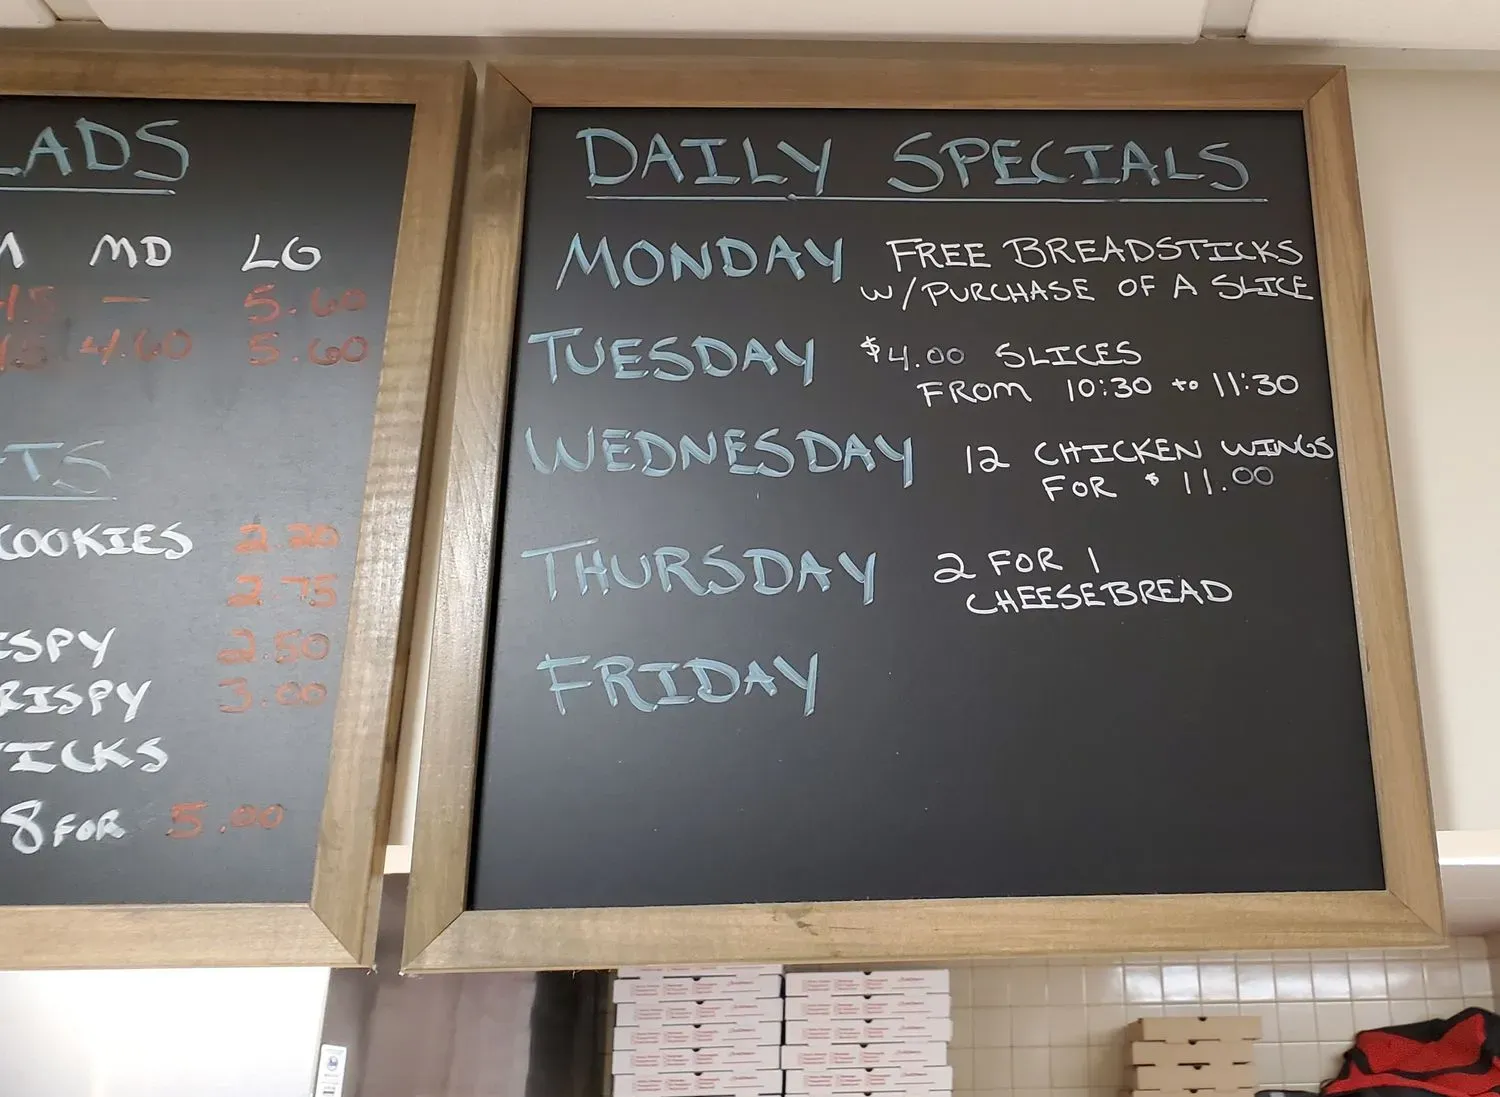 LADS
MD LG
— 5.60
4.60 5.60
TS
COOKIES 2.20
2.75
ISPY 2.50
RISPY 3.00
TICKS
8 FOR 5.00
DAILY SPECIALS
MONDAY FREE BREADSTICKS
W/PURCHASE OF A SLICE
TUESDAY $4.00 SLICES
FROM 10:30 to 11:30
WEDNESDAY 12 CHICKEN WINGS
FOR $11.00
THURSDAY 2 FOR 1
CHEESEBREAD
FRIDAY